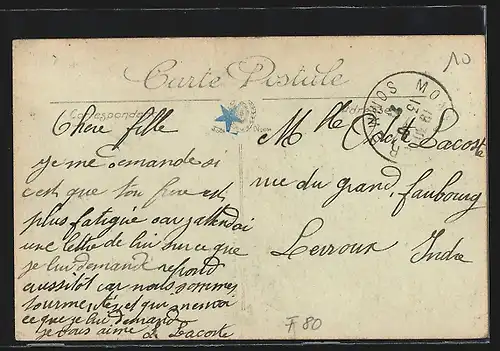 10
Carte Postale
Correspondance
Adresse
Chere fille
je me demande si
c'est que ton frere est
plus fatigue car j'attendai
une lettre de lui sur ce que
je lui demande repond
aussitôt car nous sommes
tourmentée et qui
ce que je lui demand
je vais aimé Lacoste
Mlle Lacoste
rue du grand faubourg
Levroux Indre
F 80